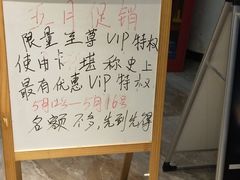 五月促销
限量至尊VIP特权
使用卡堪称史上
最有优惠VIP特权
5月12—5月16号
名额不多,先到先得